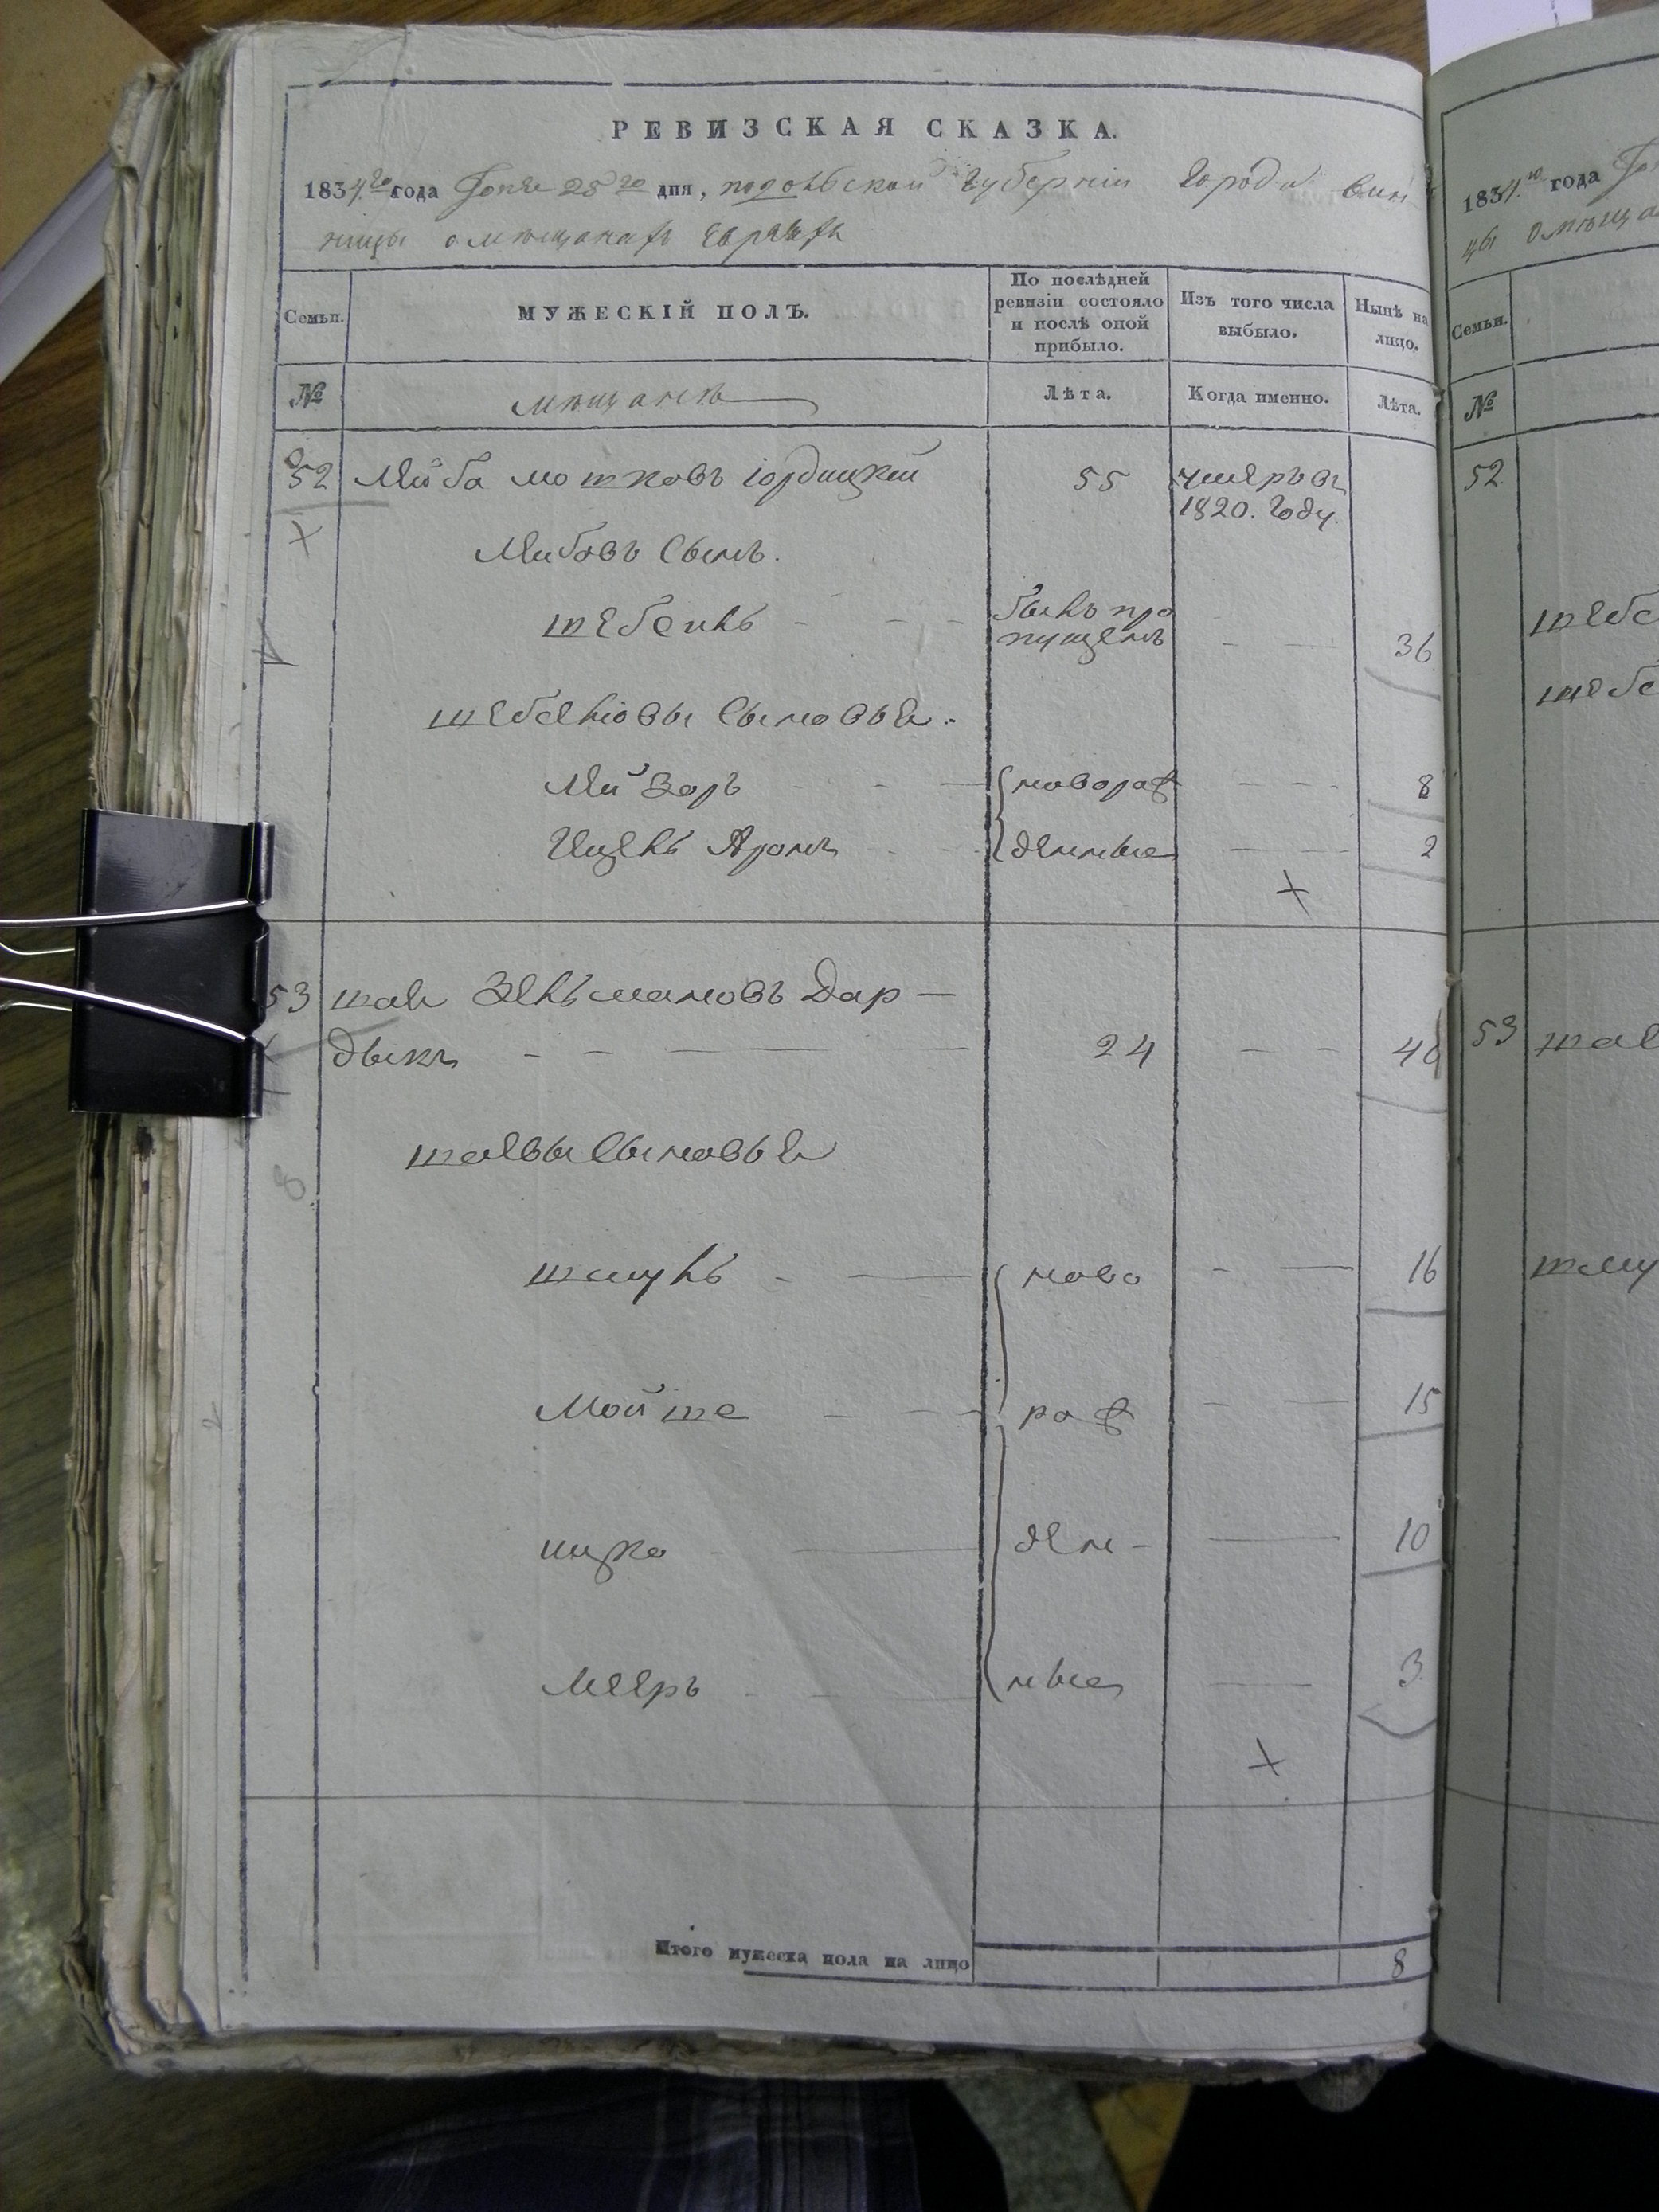 РЕВИЗСКАЯ СКАЗКА.
1834го года Іюня 25го дня, подольской губерніи города вин
ницы о мѣщанахъ евреяхъ
Семьи. МУЖЕСКІЙ ПОЛЪ. По послѣдней ревизіи состояло и послѣ оной прибыло. Изъ того числа выбыло. Нынѣ на лицо.
№ мѣщанѣ Лѣта. Когда именно. Лѣта.
52 Лейба мошковъ іордицкій 55 умеръ въ
1820. году.
Лейбовъ Сынъ.
шебсель былъ про
пущенъ 36
шебселіовы Сыновья.
Лейзоръ новорож 8
Ицель Аронъ денные 2
53 шая Зельмановъ Дар-
дыкъ 24 40
шаевы Сыновья
шмуль ново 16
Мойше рож 15
ицко ден- 10
Мееръ ные 3
Итого мужеска пола на лицо 8
1834го года
цы о мѣща
Семьи.
№
52.
шебсе
шебсе
53 шае
шму